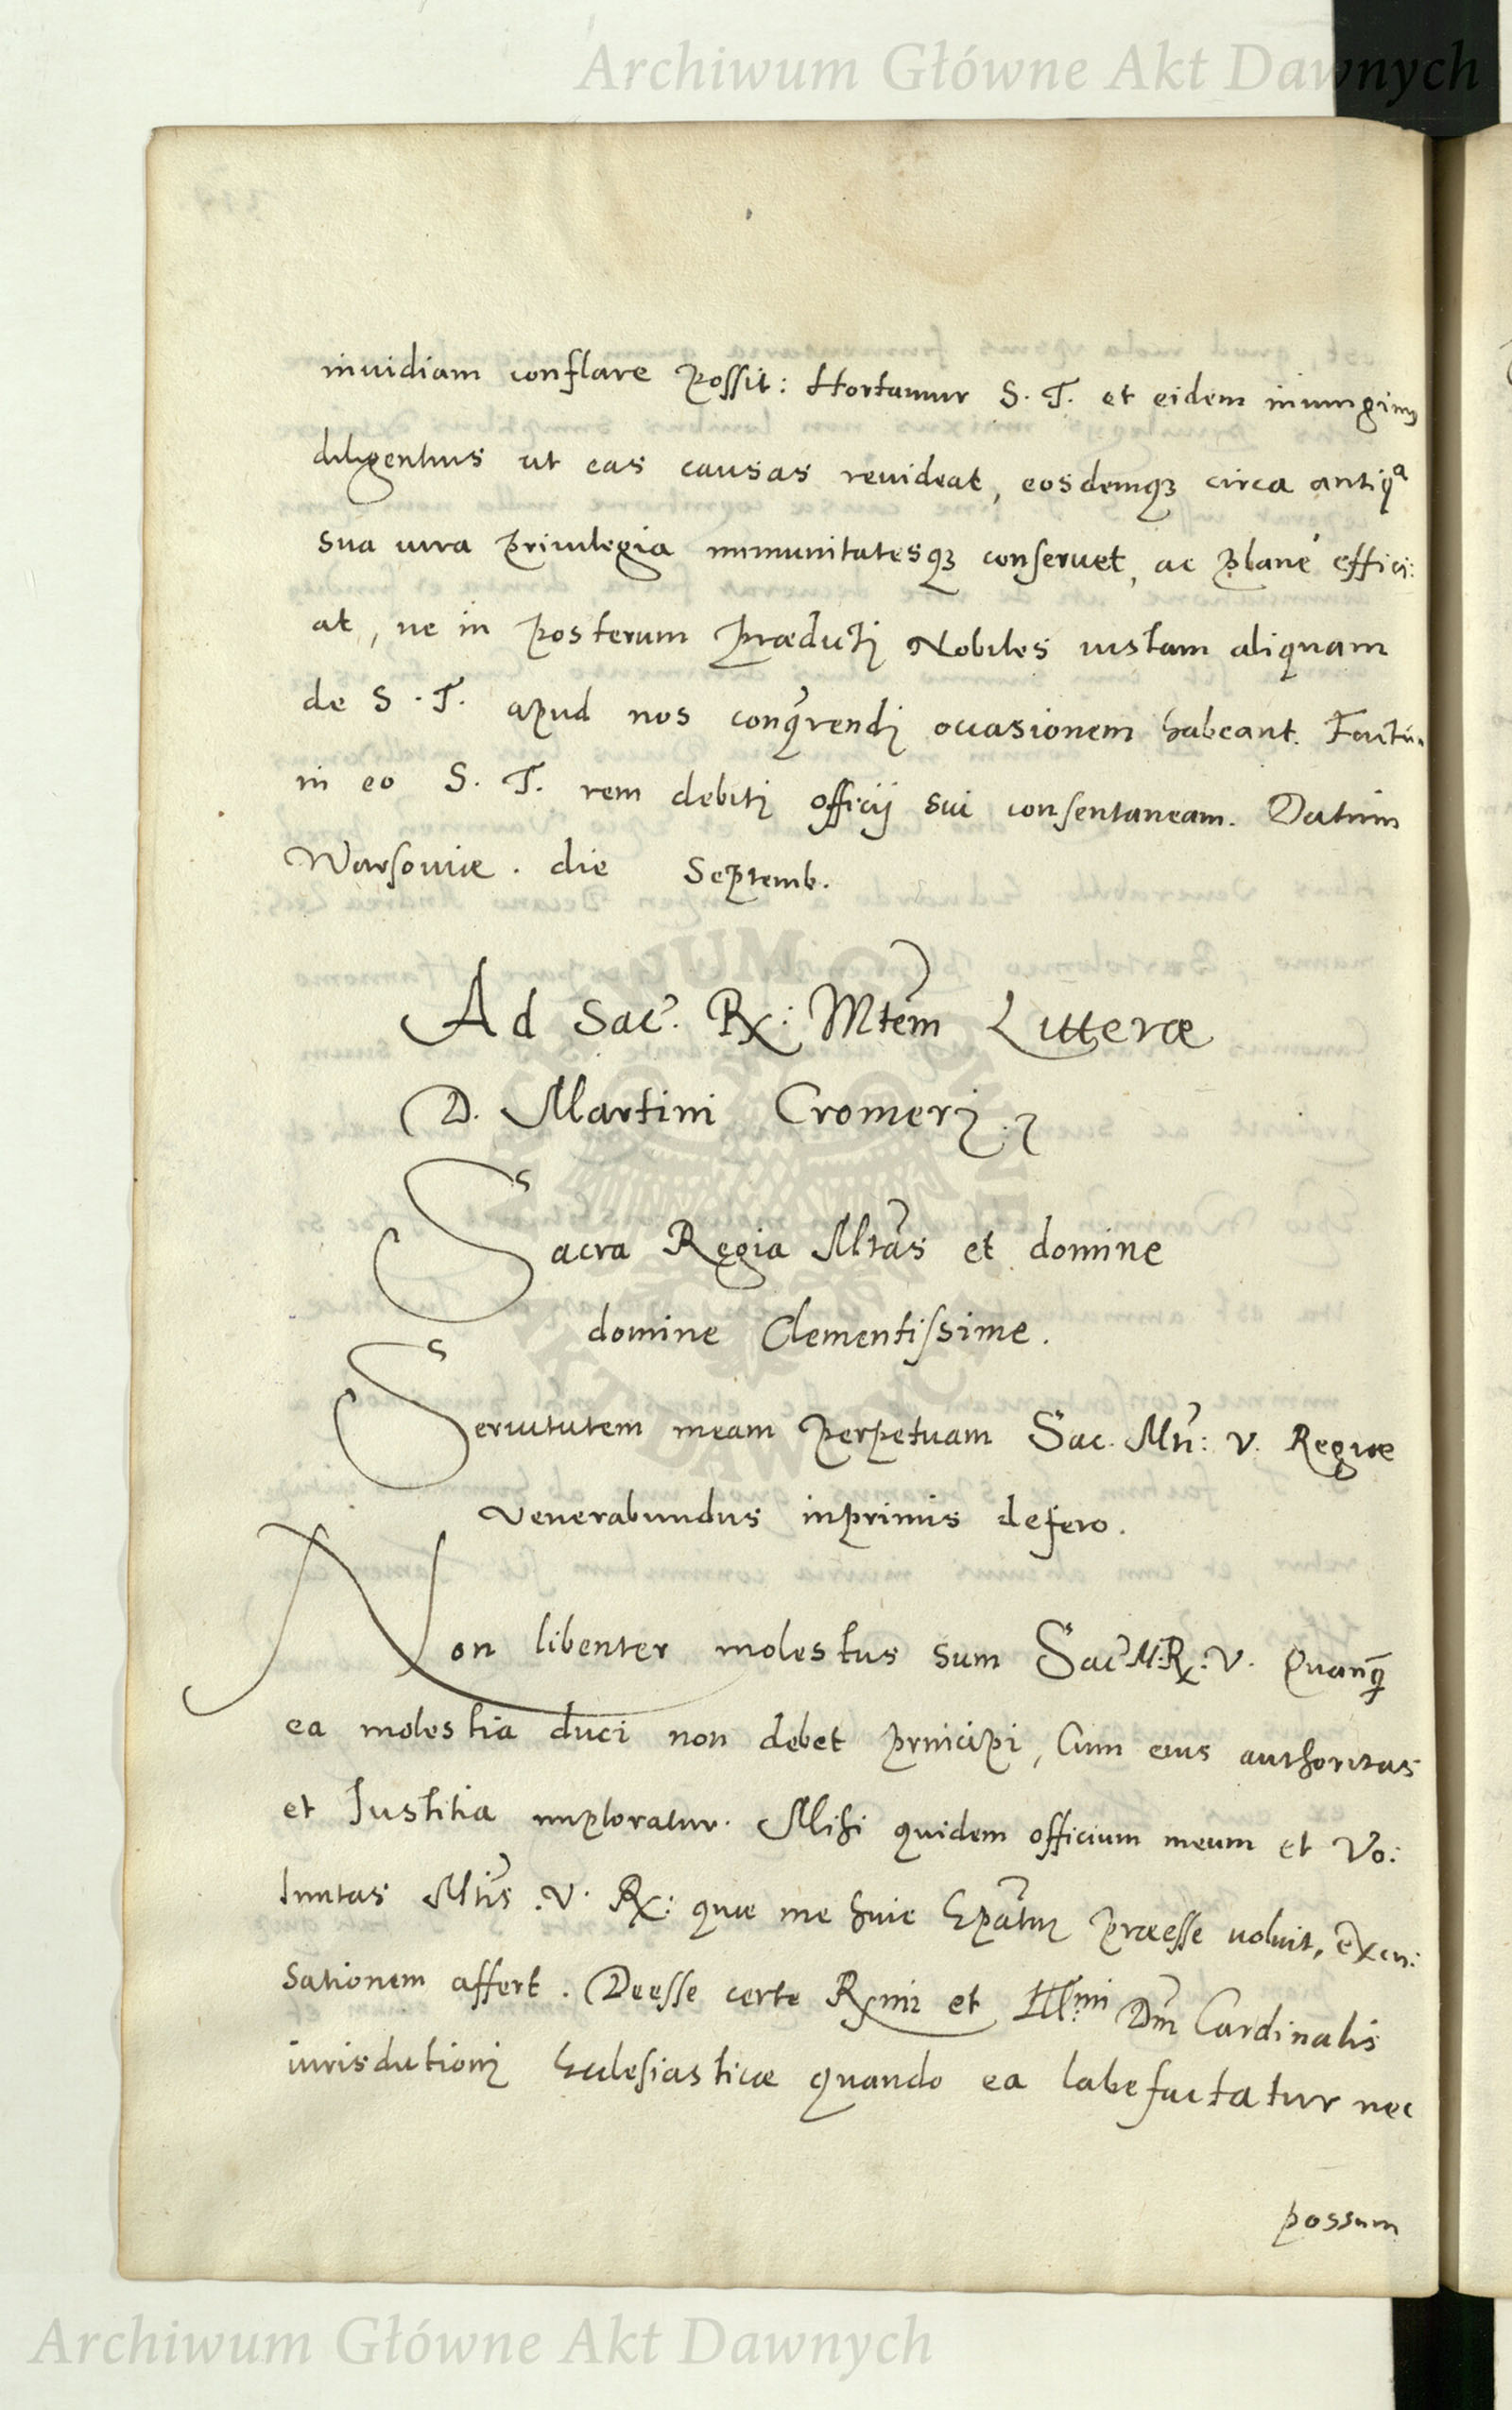 Archiwum Główne Akt Dawnych
inuidiam conflare possit: Hortamur S. T. et eidem iniungimus
diligentius ut eas causas reuideat, eosdemqꝫ circa antiqᵃ
sua iura priuilegia immunitatesqꝫ conseruet, ac planè effici:
at, ne in posterum prædicti Nobiles iustam aliquam
de S. T. apud nos conqrendi occasionem habeant. Factu.
in eo S. T. rem debiti officij sui consentaneam. Datum
Warsouiæ. die Septemb.
Ad Sac. Rx: Mtem Litteræ
D. Martini Cromeri.
Sacra Regia Mtas et domine
domine Clementissime.
Seruitutem meam perpetuam Sac. Mti: V. Regiæ
venerabundus inprimis defero.
Non libenter molestus sum Sac M: Rx: V. Quanq̃
ea molestia duci non debet principi, Cum eius authoritas
et Iustitia imploratur. Mihi quidem officium meum et Vo:
luntas Mtis .V. Rx: quæ me huic Epatui præesse uoluit, excu:
sationem affert. Deesse certe Rxmi et Illmi Dni Cardinalis
iurisdictioni Ecclesiasticæ quando ea labefactatur nec
possum
Archiwum Główne Akt Dawnych